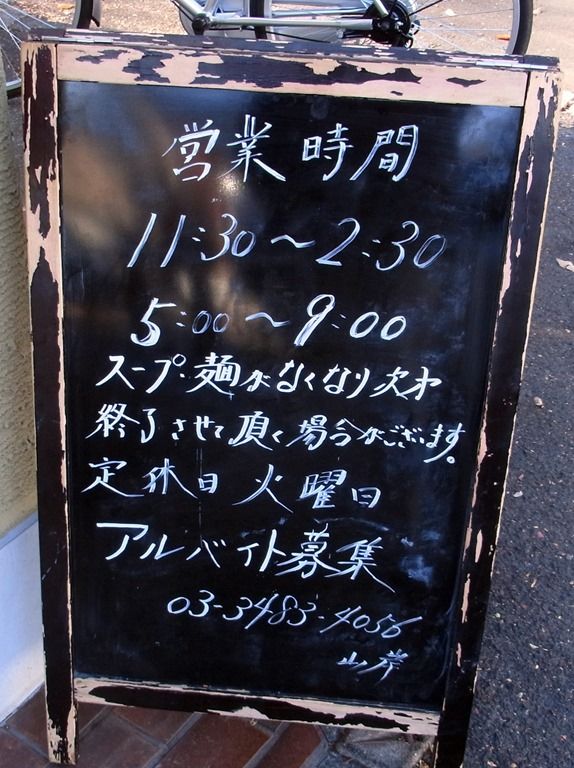 営業時間
11:30〜2:30
5:00〜9:00
スープ・麺がなくなり次オ
終了させて頂く場合がございます。
定休日 火曜日
アルバイト募集
03-3483-4056
山岸